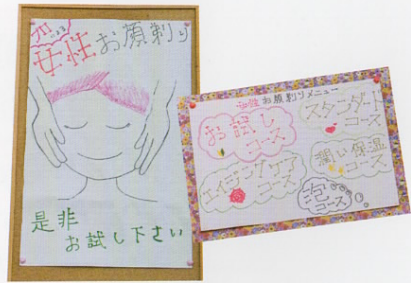 女性お顔剃り
是非
お試し下さい
女性お顔剃りメニュー
お試し
コース
スタンダード
コース
エイジングケア
コース
潤い保湿
コース
泡
コース